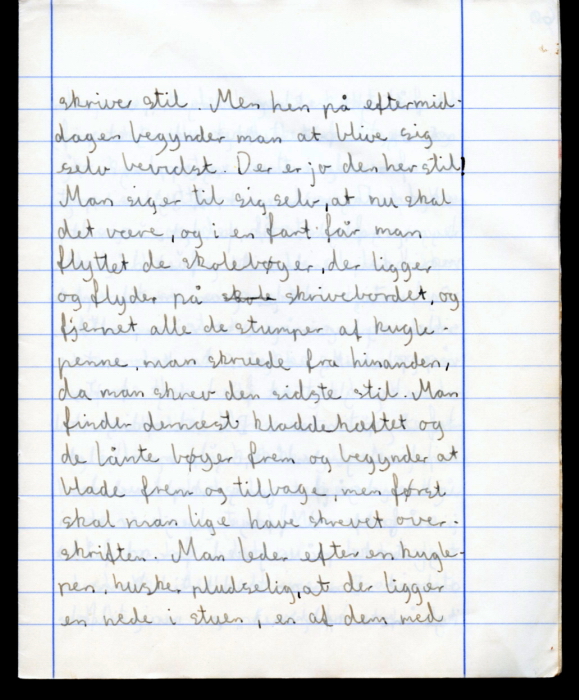 skriver stil. Men hen på eftermid-
dagen begynder man at blive sig
selv bevidst. Der er jo den her stil!
Man siger til sig selv, at nu skal
det være, og i en fart får man
flyttet de skolebøger, der ligger
og flyder på skole skrivebordet, og
fjernet alle de stumper af kugle-
penne, man skruede fra hinanden,
da man skrev den sidste stil. Man
finder dernæst kladdehæftet og
de lånte bøger frem og begynder at
blade frem og tilbage, men først
skal man lige have skrevet over-
skriften. Man leder efter en kugle-
pen, husker pludselig, at der ligger
en nede i stuen, en af dem med